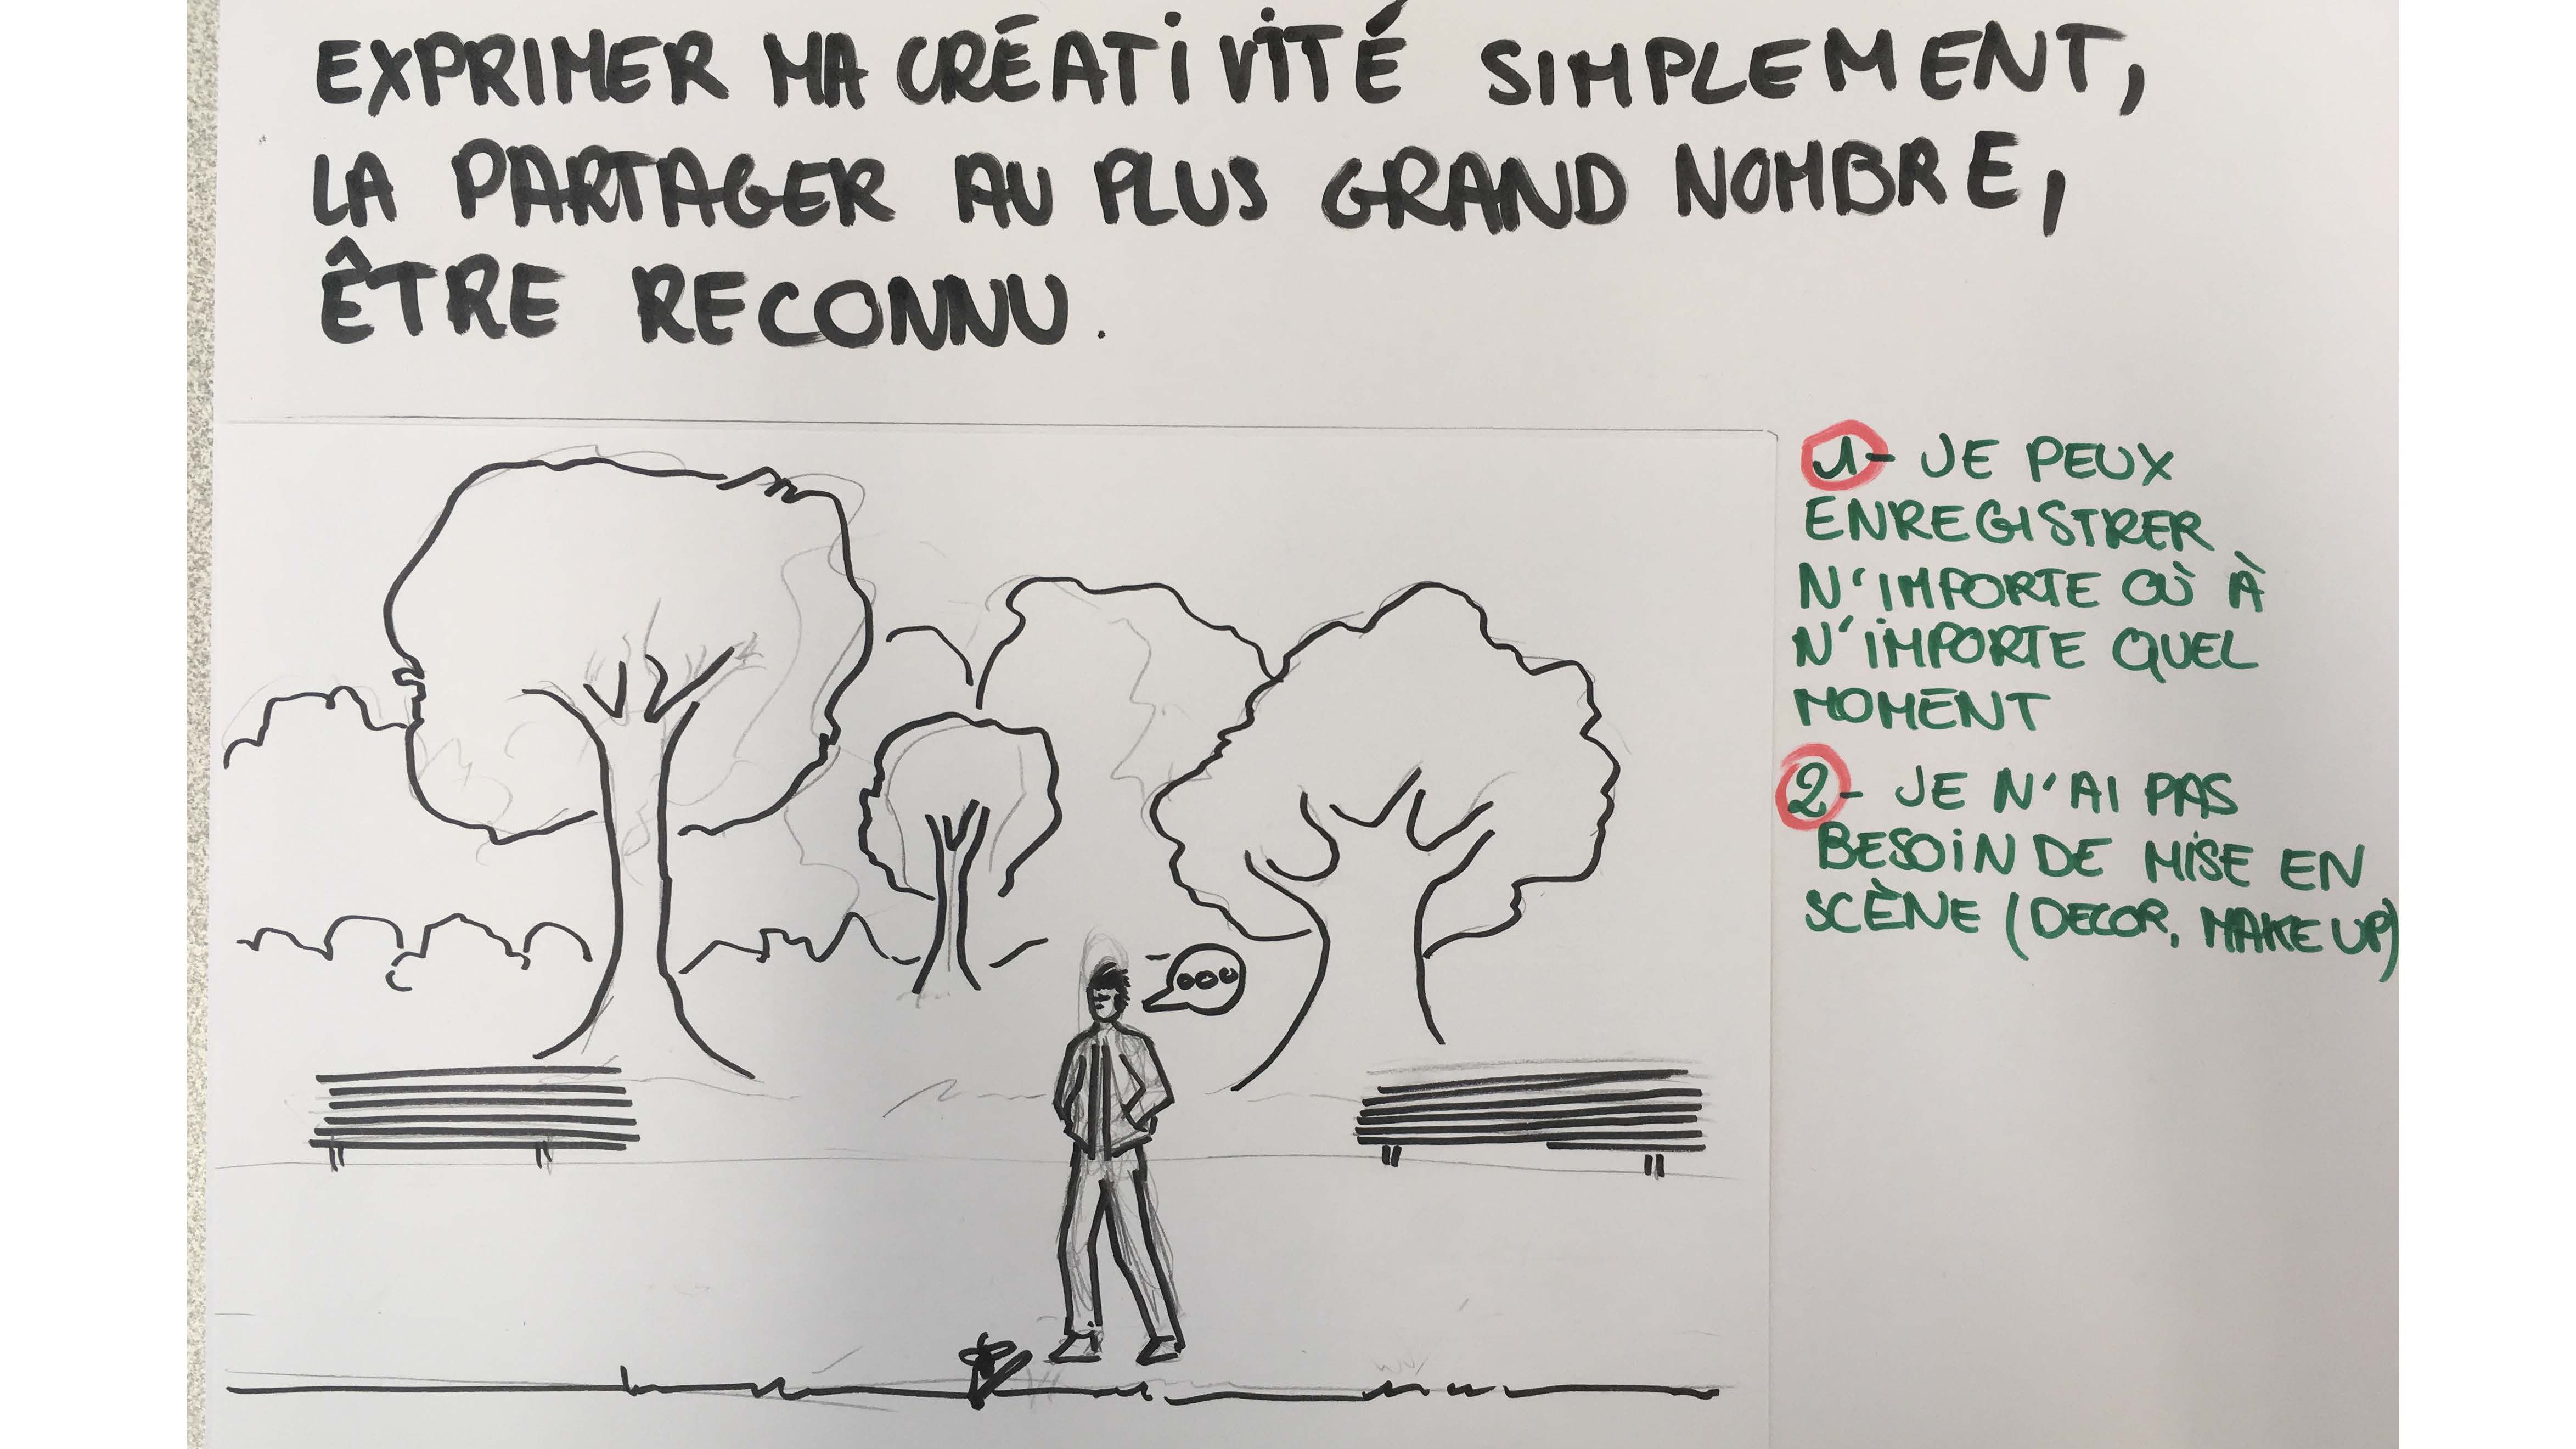 EXPRIMER MA CRÉATIVITÉ SIMPLEMENT,
LA PARTAGER AU PLUS GRAND NOMBRE,
ÊTRE RECONNU.
1- JE PEUX
ENREGISTRER
N'IMPORTE OÙ À
N'IMPORTE QUEL
MOMENT
2- JE N'AI PAS
BESOIN DE MISE EN
SCÈNE (DECOR, MAKE UP)